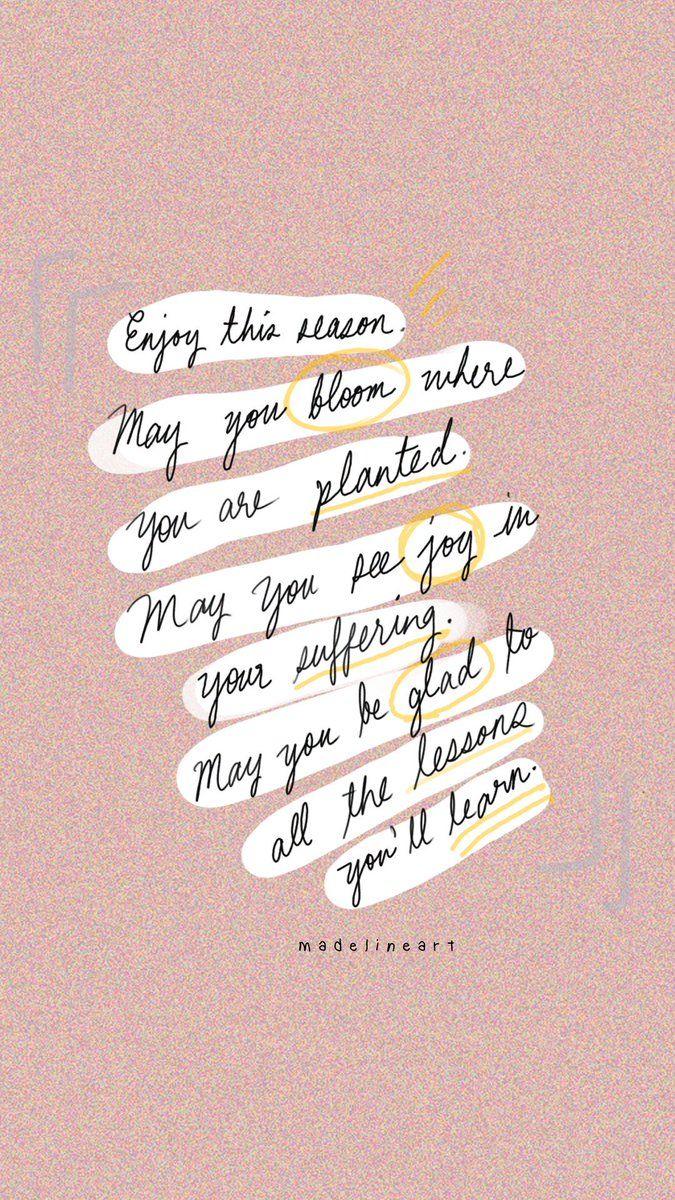 Enjoy this season.
May you bloom where
you are planted.
May you see joy in
your suffering.
May you be glad to
all the lessons
you'll learn.
madelineart